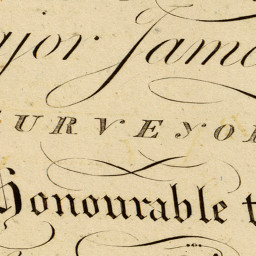 ajor Jame
SURVEYOR
Honourable t